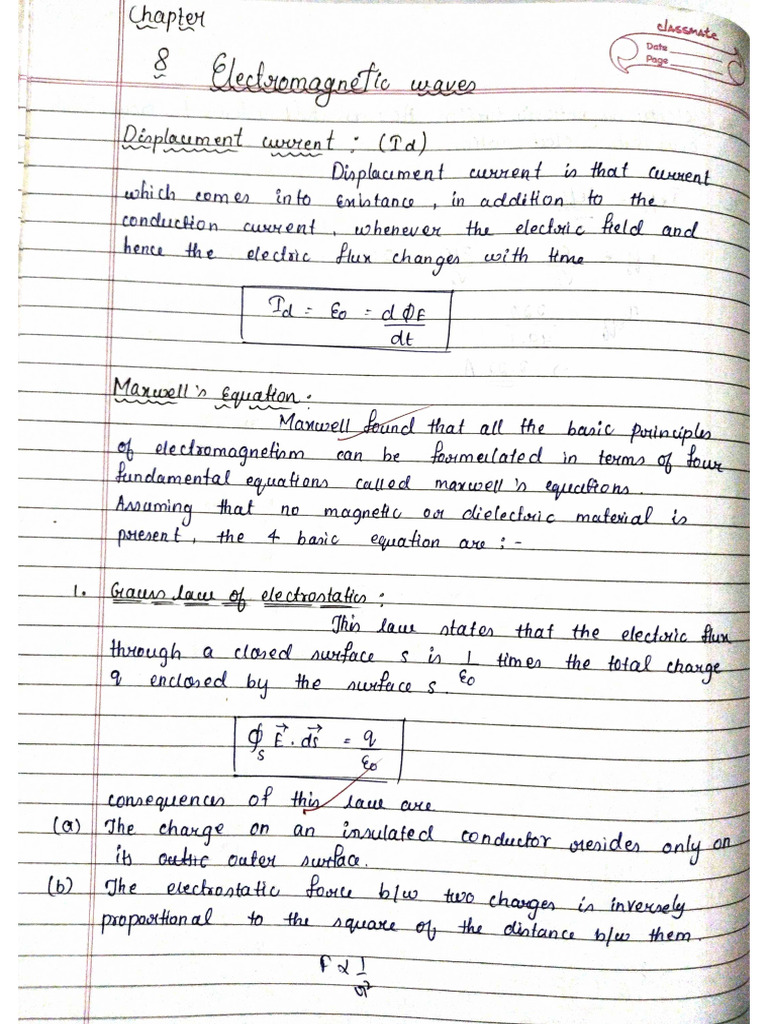 Chapter
classmate
Date
Page
8 Electromagnetic waves
Displacment current : (Id)
Displacment current is that current
which comes into existance, in addition to the
conduction current, whenever the electric field and
hence the electric flux changes with time
Id = ε0 = dϕE
dt
Maxwell's Equation :
Maxwell found that all the basic principles
of electromagnetism can be formulated in terms of four
fundamental equations called maxwell's equations.
Assuming that no magnetic or dielectric material is
present, the 4 basic equation are :-
1. Gauss law of electrostatics :
This law states that the electric flux
through a closed surface s is 1/ε0 times the total charge
q enclosed by the surface s.
∮s E⃗ . ds⃗ = q
ε0
consequences of this law are
(a) The charge on an insulated conductor resides only on
its outer surface.
(b) The electrostatic force b/w two charges is inversely
proportional to the square of the distance b/w them.
F ∝ 1
r²